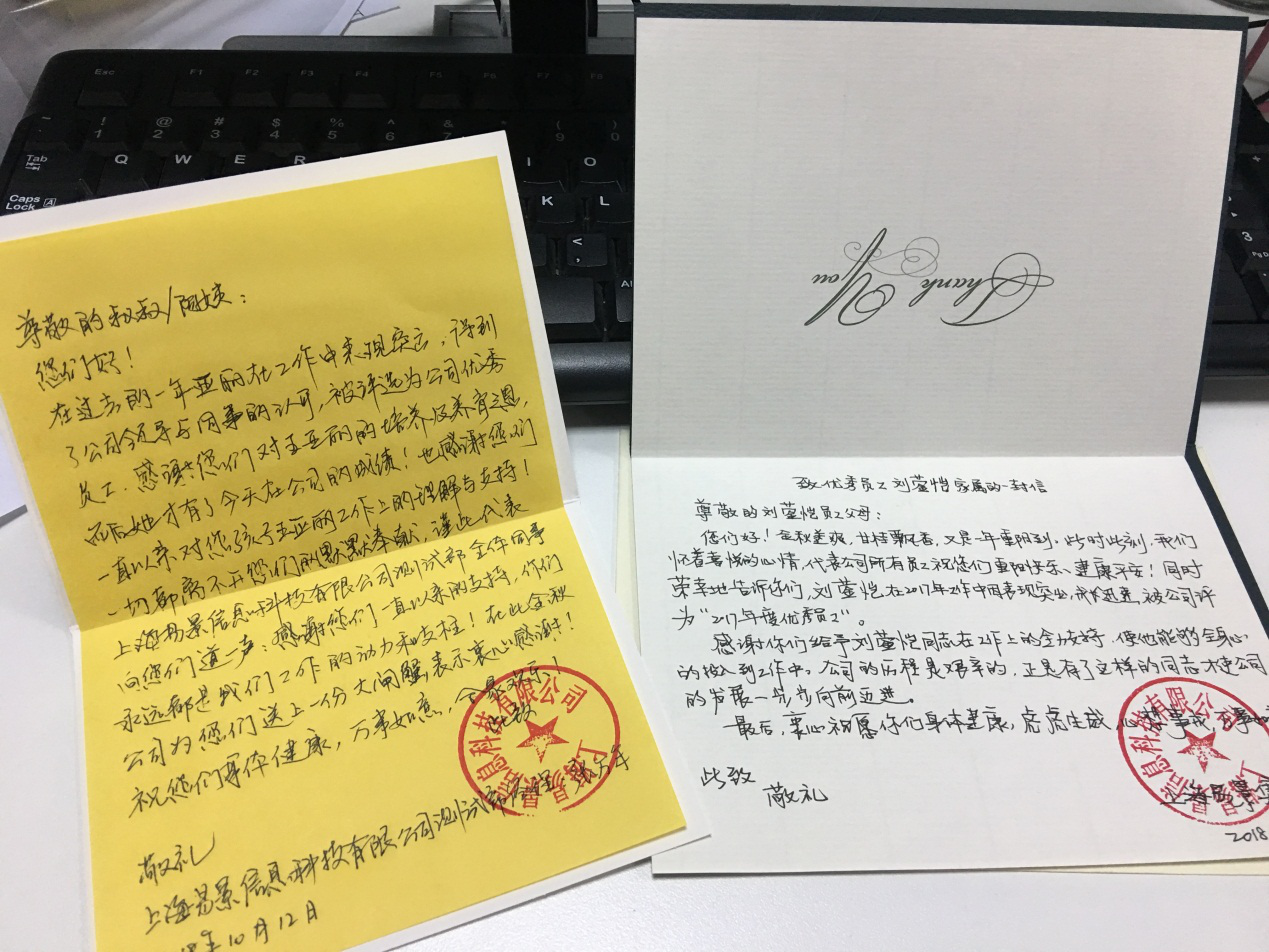 尊敬的叔叔/阿姨：
您们好！
在过去的一年亚丽在工作中表现突出，得到
了公司领导与同事的认可，被评选为公司优秀
员工．感谢您们对王亚丽的培养及养育之恩，
而后她才有了今天在公司的成绩！也感谢您们
一直以来对您孩子王亚丽工作上的理解与支持！
一切都离不开您们的默默奉献，谨此代表
上海易景信息科技有限公司测试部全体同事
向您们道一声：感谢您们一直以来的支持，你们
永远都是我们工作的动力和支柱！在此金秋
公司为您们送上一份大闸蟹表示衷心感谢！
祝您们身体健康，万事如意，合家欢乐！
此致
敬礼
上海易景信息科技有限公司测试部经理
年10月12日
Thank You
致优秀员工刘莹恺家属的一封信
尊敬的刘莹恺员工父母：
您们好！金秋送爽，甘桂飘香，又是一年重阳到，此时此刻，我们
怀着喜悦的心情，代表公司所有员工祝您们重阳快乐、健康平安！同时
荣幸地告诉你们，刘莹恺在2017年工作中表现突出，成长迅速，被公司评
为“2017年度优秀员工”。
感谢你们给予刘莹恺同志在工作上的全力支持，使他能够全身心
的投入到工作中。公司的历程是艰辛的，正是有了这样的同志才使公司
的发展一步步向前迈进。
最后，衷心祝愿你们身体健康，虎虎生威，心想事成，万事如
此致
敬礼
上海易景信
2018
Esc F1 F2 F3 F4 F5 F6 F7 F8
Tab Q W E R I O
Caps Lock A K L